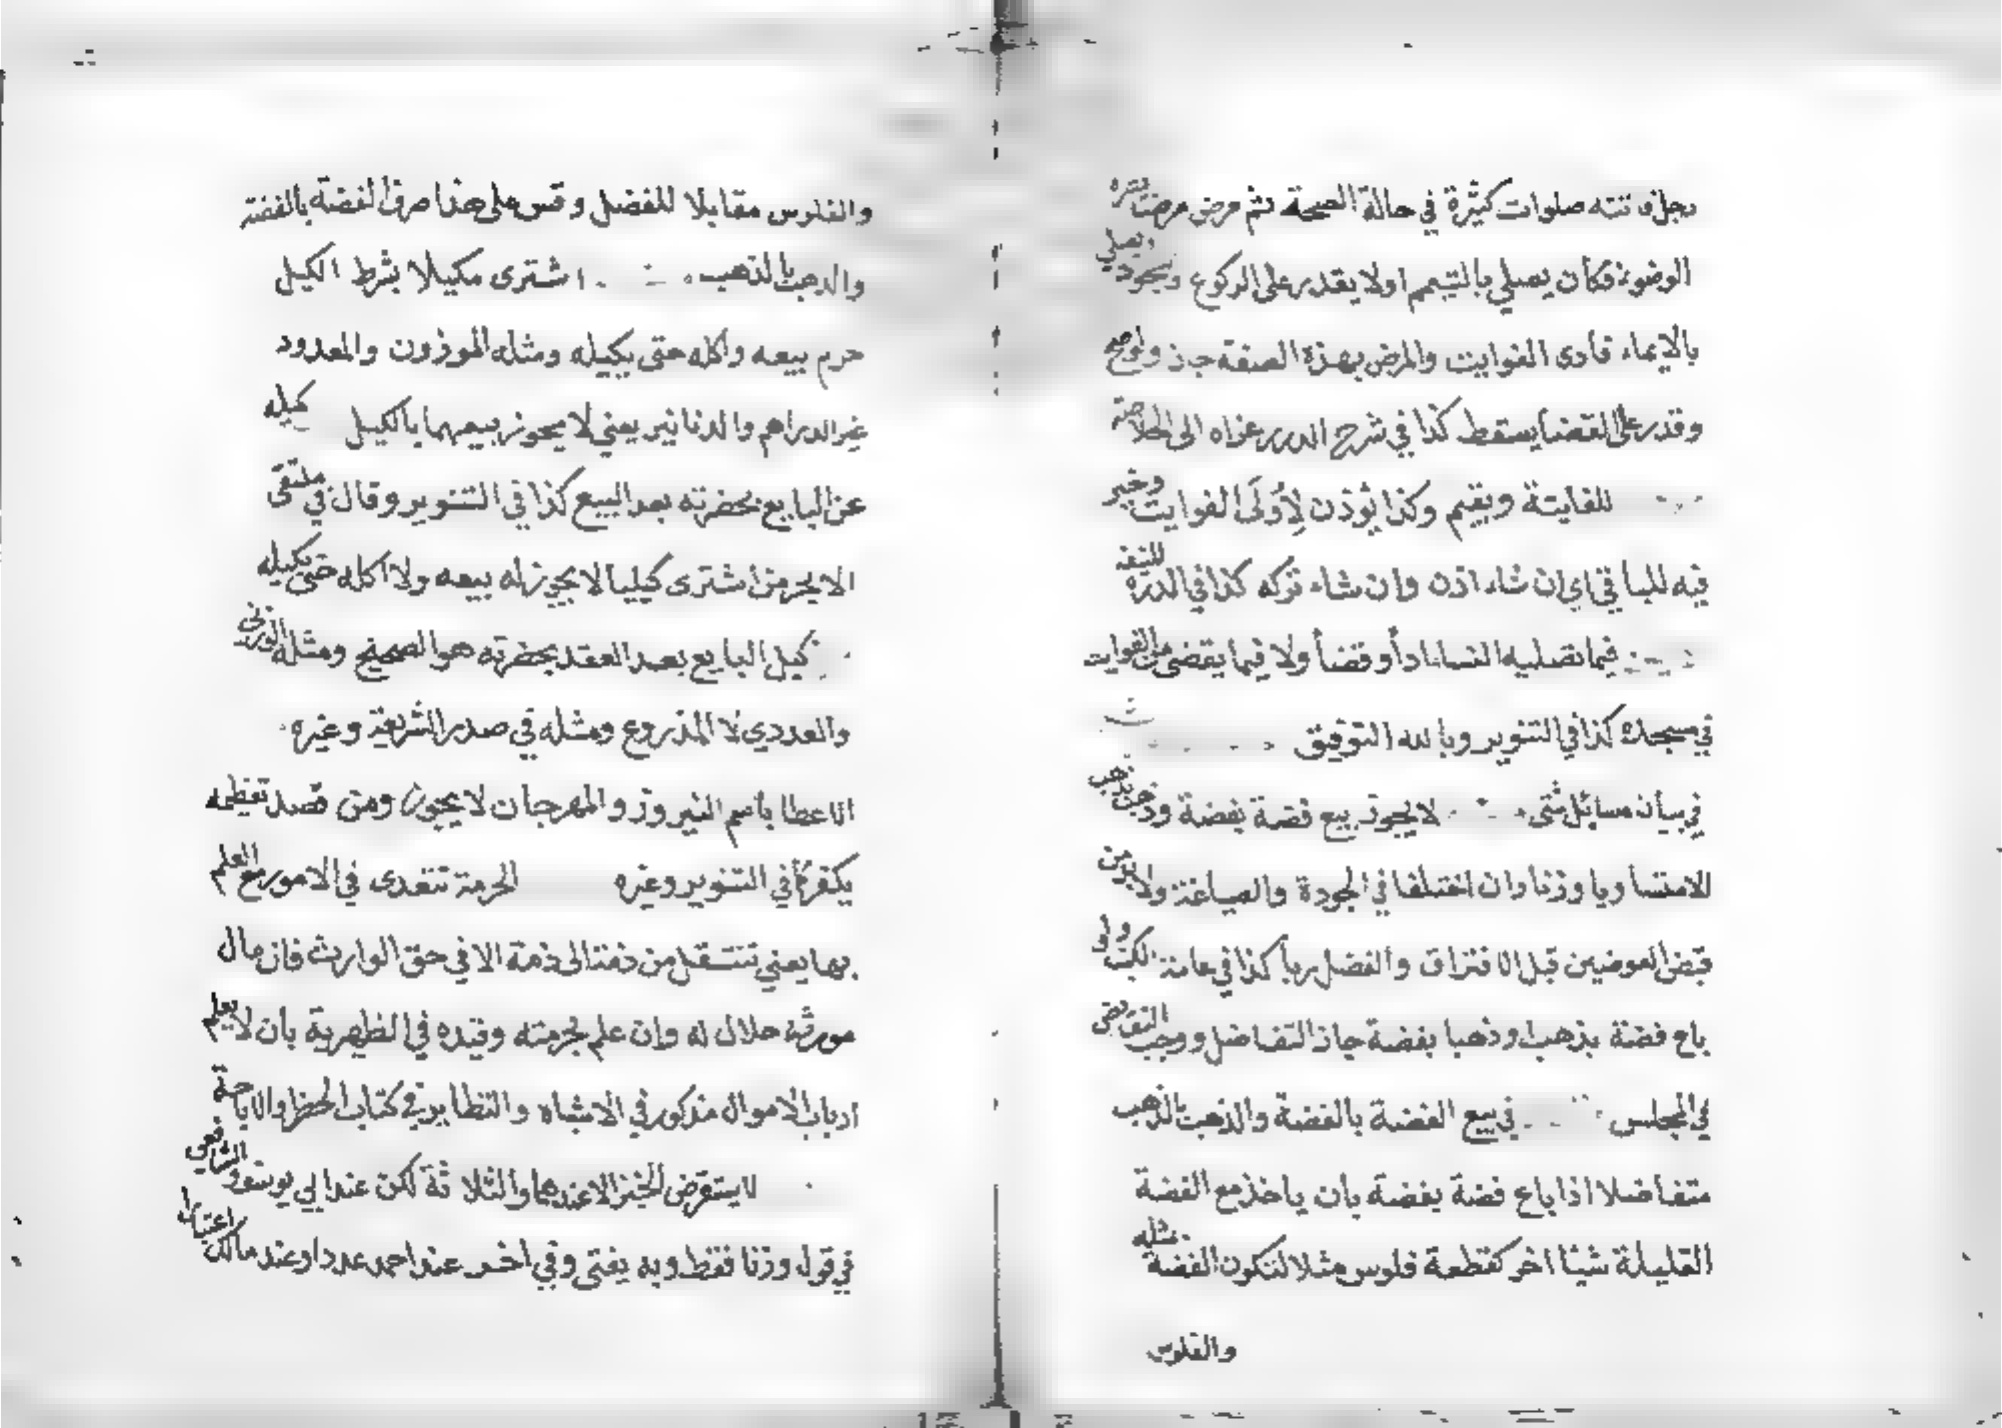 رجل فاتته صلوات كثيرة في حالة الصحة ثم مرض مرضا يضره
الوضوء فكان يصلي بالتيمم او لا يقدر على الركوع وسجود ويصلي
بالايماء فادى الفوايت والمرض بهذه الصفة جاز ولو صح
وقدر على القضا يسقط كذا في شرح الدرر عزاه الى الخلاصة
للفايتة ويقيم وكذا يؤذن لِأُولَى الفوايت وخير
فيه للباقي اي ان شاء اذن وان شاء تركه كذا في الدرة المنيفة
فيما تصليه النسا اداً وقضأ ولا فيما يقضي من الفوايت
في مسجده كذا في التنوير وبالله التوفيق
في بيان مسائل شتى لا يجوز بيع فضة بفضة وذهب بذهب
الا متساويا وزنا وان اختلفا في الجودة والصياغة ولا بد من
قبض العوضين قبل الافتراق والفضل ربأ كذا في عامة الكتب ولو
باع فضة بذهب او ذهبا بفضة جاز التفاضل ووجب التقابض
في المجلس في بيع الفضة بالفضة والذهب بالذهب
متفاضلا اذا باع فضة بفضة بان ياخذ مع الفضة
القليلة شيئا اخر كقطعة فلوس مثلا لتكون الفضة بمثله
والفلوس
والفلوس مقابلا للفضل وقس على هذا صرف الفضة بالفضة
والذهب بالذهب اشترى مكيلا بشرط الكيل
حرم بيعه واكله حتى يكيله ومثله الموزون والمعدود
غير الدراهم والدنانير يعني لا يجوز بيعهما بالكيل كيله
عن البايع بحضرته بعد البيع كذا في التنوير وقال في ملتقى
الابحر من اشترى كيليا لا يجوز له بيعه ولا اكله حتى يكيله
كيل البايع بعد العقد بحضرته هو الصحيح ومثله الوزني
والعددي لا المذروع ومثله في صدر الشريعة وغيره
الاعطا باسم النيروز والمهرجان لا يجوز ومن قصد تعظيمه
يكفر كما في التنوير وغيره الحرمة تتعدى في الاموال مع العلم
بها يعني تنتقل من ذمة الى ذمة الا في حق الوارث فان مال
مورثه حلال له وان علم بحرمته وقيده في الظهيرية بان لا يعلم
ارباب الاموال مذكور في الاشباه والنظاير في كتاب الحظر والاباحة
لا يستقرض الخبز الا عندهما والثلاثة لكن عند ابي يوسف والشافعي
في قول وزنا فقط وبه يفتى وفي اخر عند احمد عددا وعند مالك اعتبارا